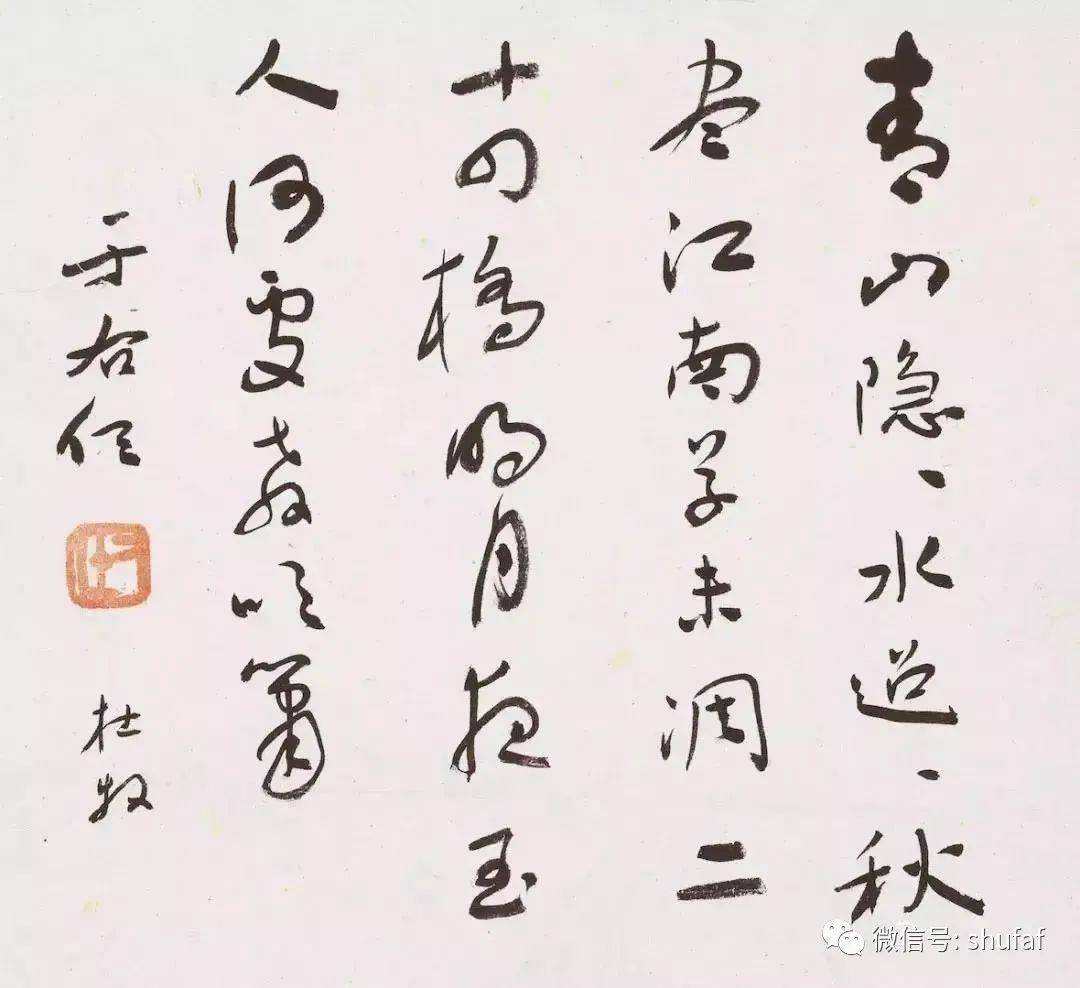 青山隐、水迢、秋
尽江南草未凋二
十四桥明月夜玉
人何处教吹箫
于右任
杜牧
微信号: shufaf